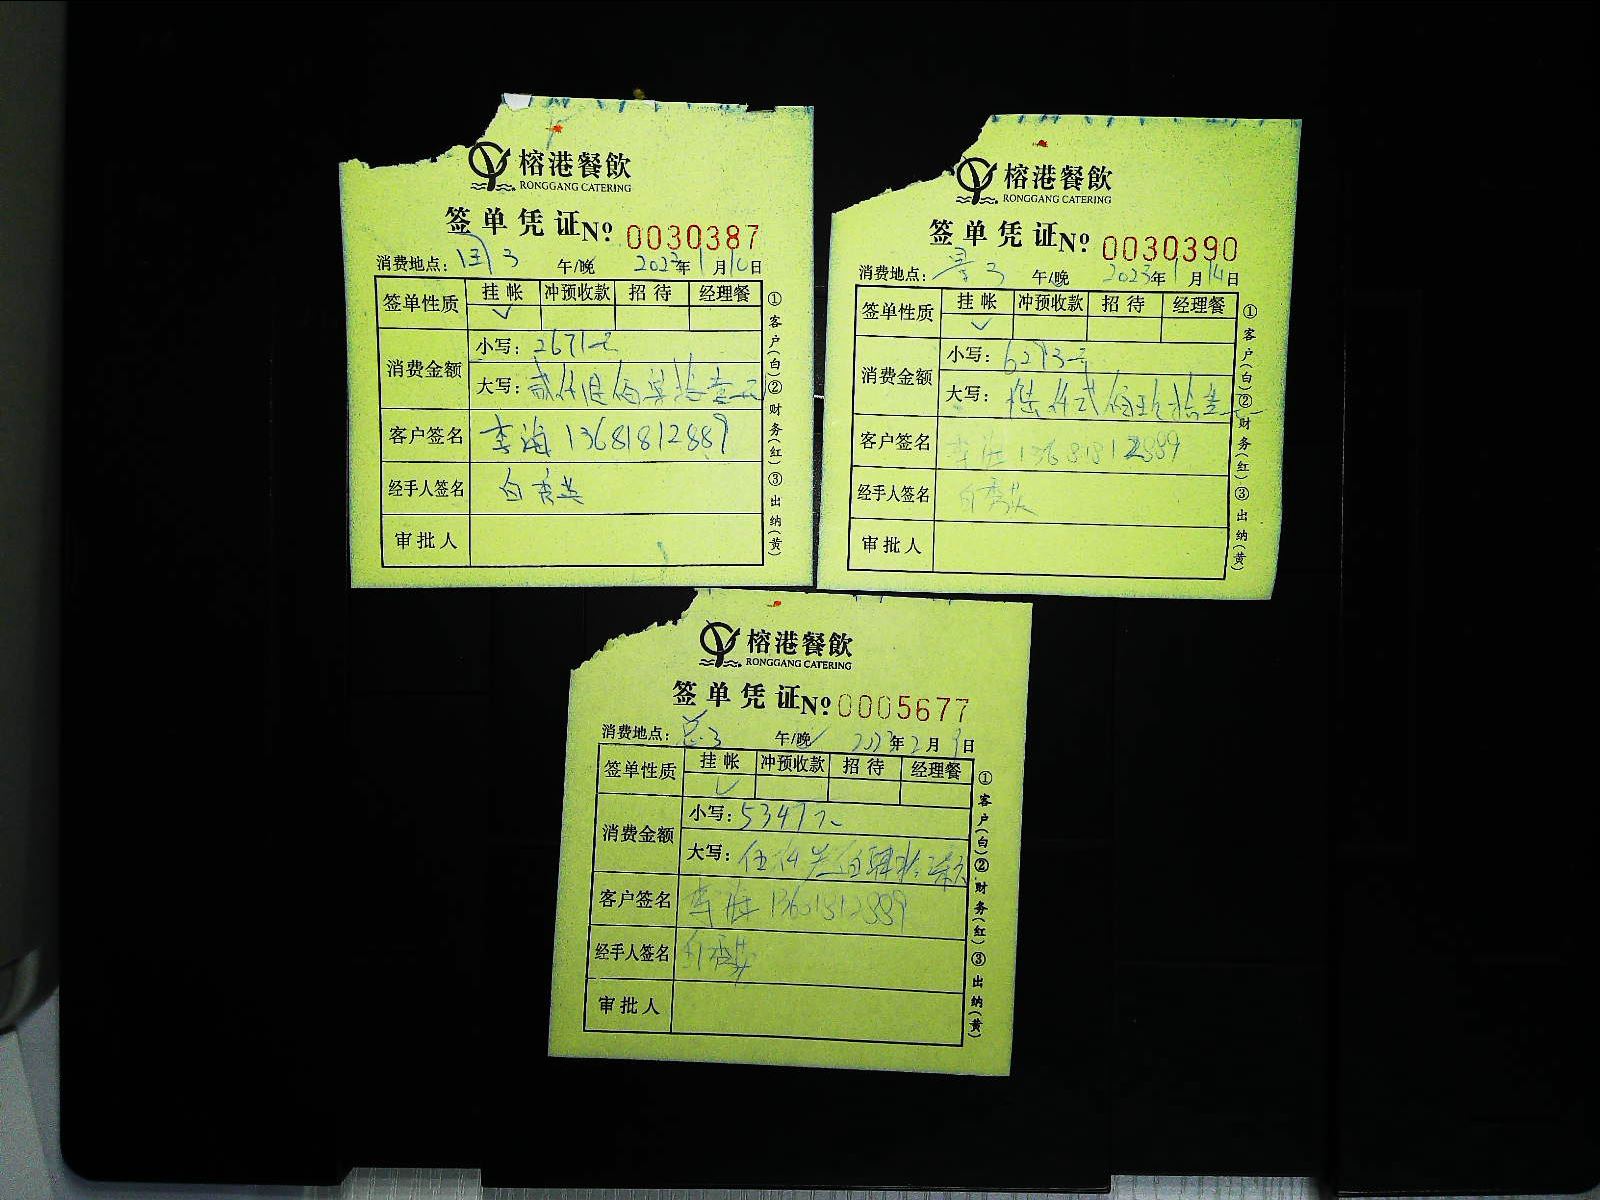 榕港餐飲
RONGGANG CATERING
签单凭证 №0030387
消费地点： 午/晚 2023年1月10日
签单性质 挂帐 冲预收款 招待 经理餐
✓
消费金额
小写：2671元
大写：贰仟陆佰柒拾壹元
客户签名 李海 13681812889
经手人签名 白秀英
审批人
①客户(白)②财务(红)③出纳(黄)
榕港餐飲
RONGGANG CATERING
签单凭证 №0030390
消费地点： 午/晚 2023年1月14日
签单性质 挂帐 冲预收款 招待 经理餐
✓
消费金额
小写：
大写：
客户签名 李海 13681812889
经手人签名 白秀英
审批人
①客户(白)②财务(红)③出纳(黄)
榕港餐飲
RONGGANG CATERING
签单凭证 №0005677
消费地点： 午/晚 2023年2月9日
签单性质 挂帐 冲预收款 招待 经理餐
✓
消费金额
小写：5347元
大写：伍仟叁佰肆拾柒元
客户签名 李海 13681812889
经手人签名 白秀英
审批人
①客户(白)②财务(红)③出纳(黄)